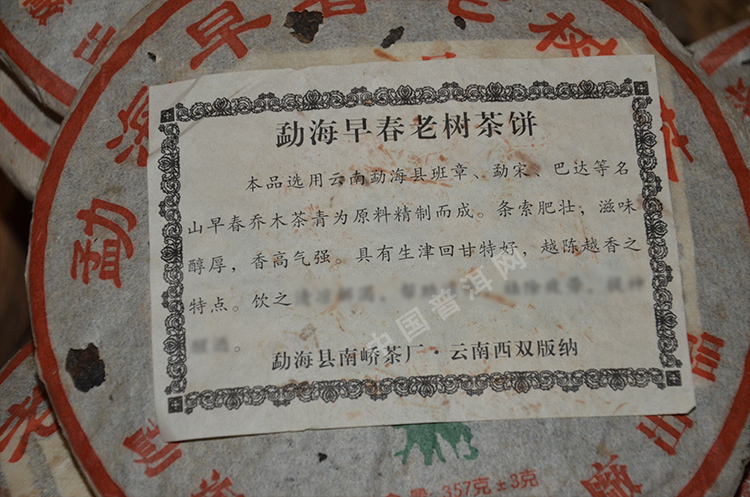 勐海早春老树茶饼
勐海早春老树茶饼
本品选用云南勐海县班章、勐宋、巴达等名
山早春乔木茶青为原料精制而成。条索肥壮，滋味
醇厚，香高气强。具有生津回甘特好，越陈越香之
特点。饮之
勐海县南峤茶厂·云南西双版纳
357克±3克
出品
中国普洱网